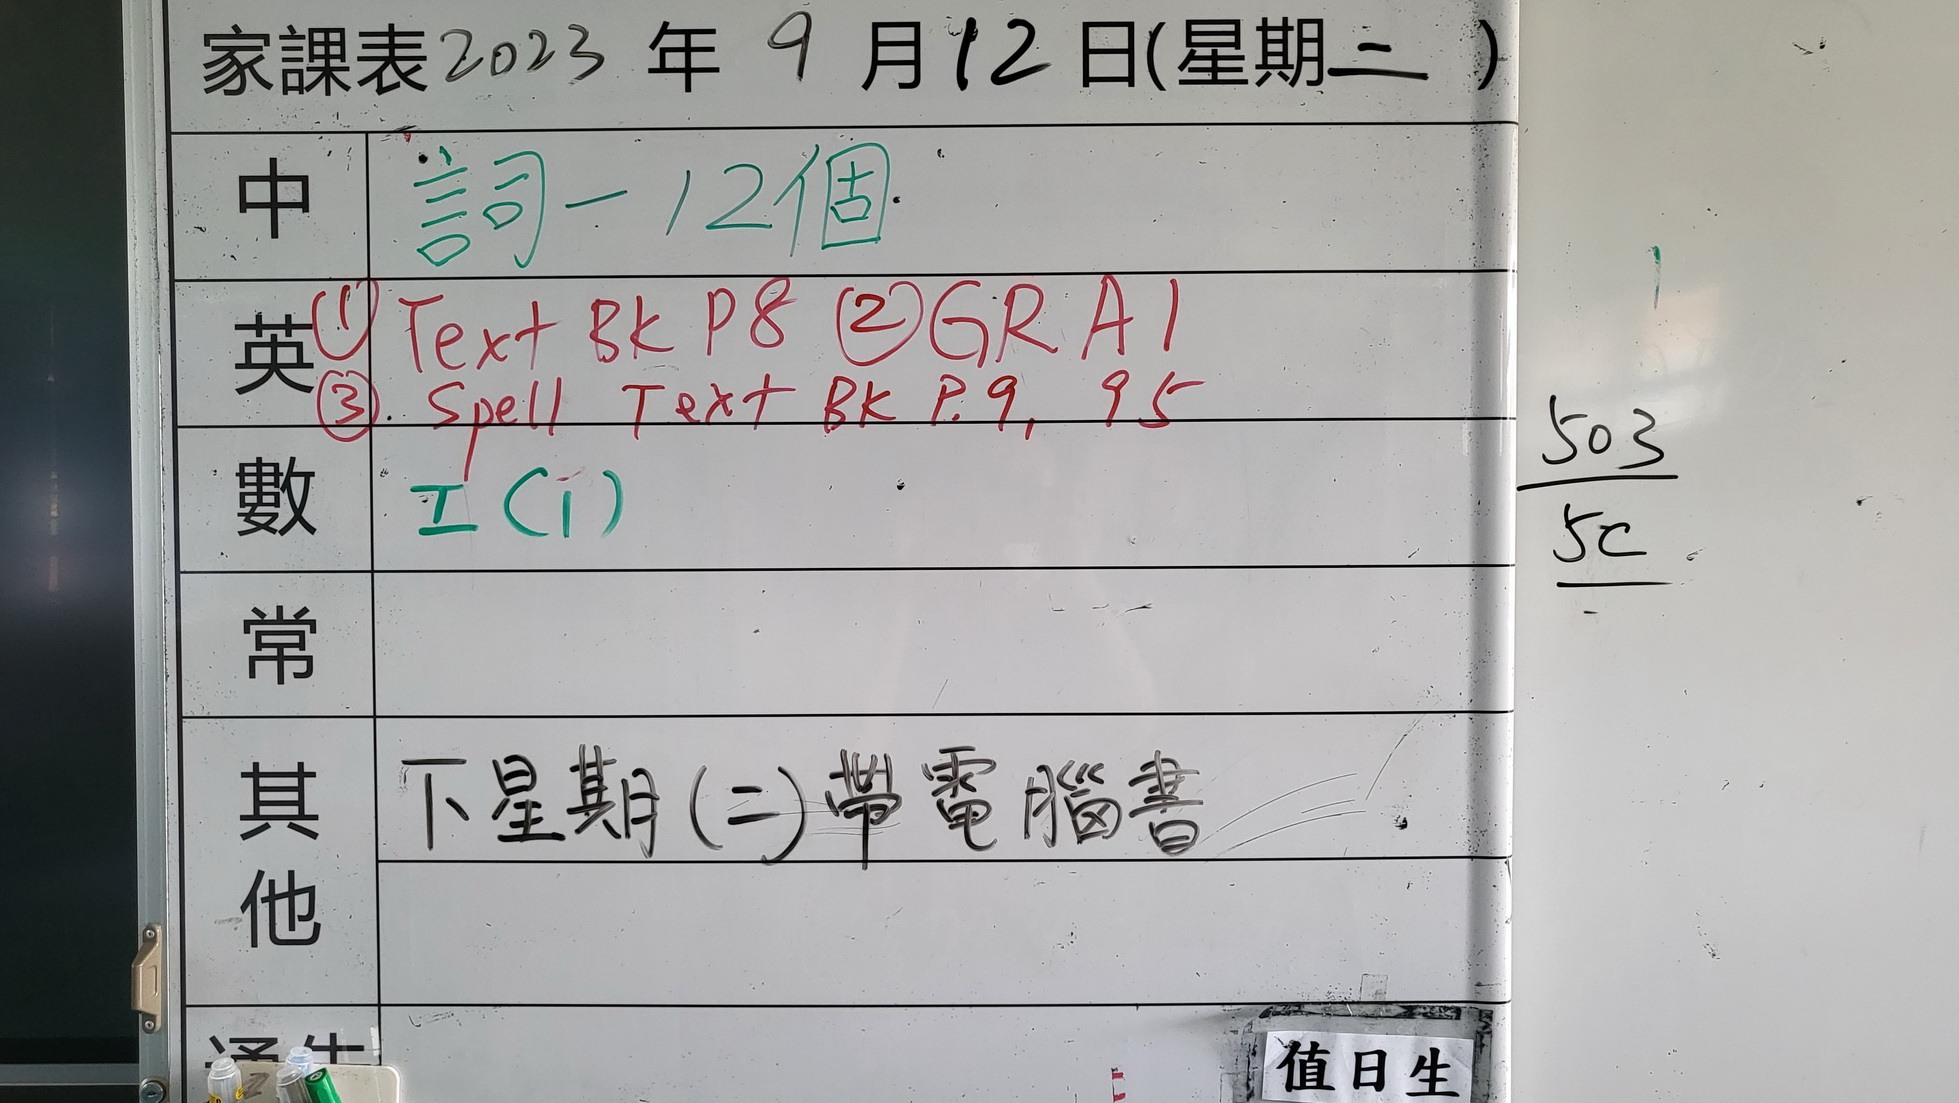 家課表2023年 9月12日(星期二 )
中 詞一12個
英 ① Text BK P8 ② GR A1
③. Spell Text BK P.9, 95
數 工(1)
503
5C
常
其他 下星期(二)帶電腦書
通告
值日生